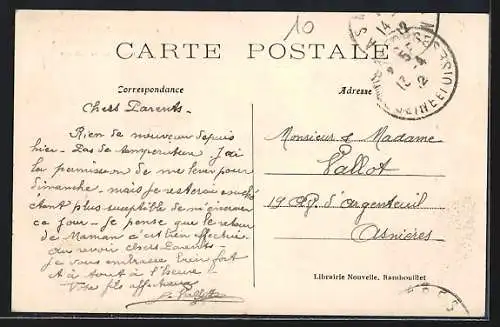 10
CARTE POSTALE
Correspondance
Adresse
Chers Parents.
Rien de nouveau depuis
hier. Pas de température J'ai
la permission de me lever pour
dimanche, mais je resterai couché
étant plus susceptible de m'énerver
ce jour. Je pense que le retour
de Maman s'est bien effectué
au revoir chers Parents -
je vous embrasse bien fort
et à tout à l'heure -
Votre fils affectueux
Monsieur & Madame
Pallot
19 d'Argenteuil
Asnières
Librairie Nouvelle, Rambouillet